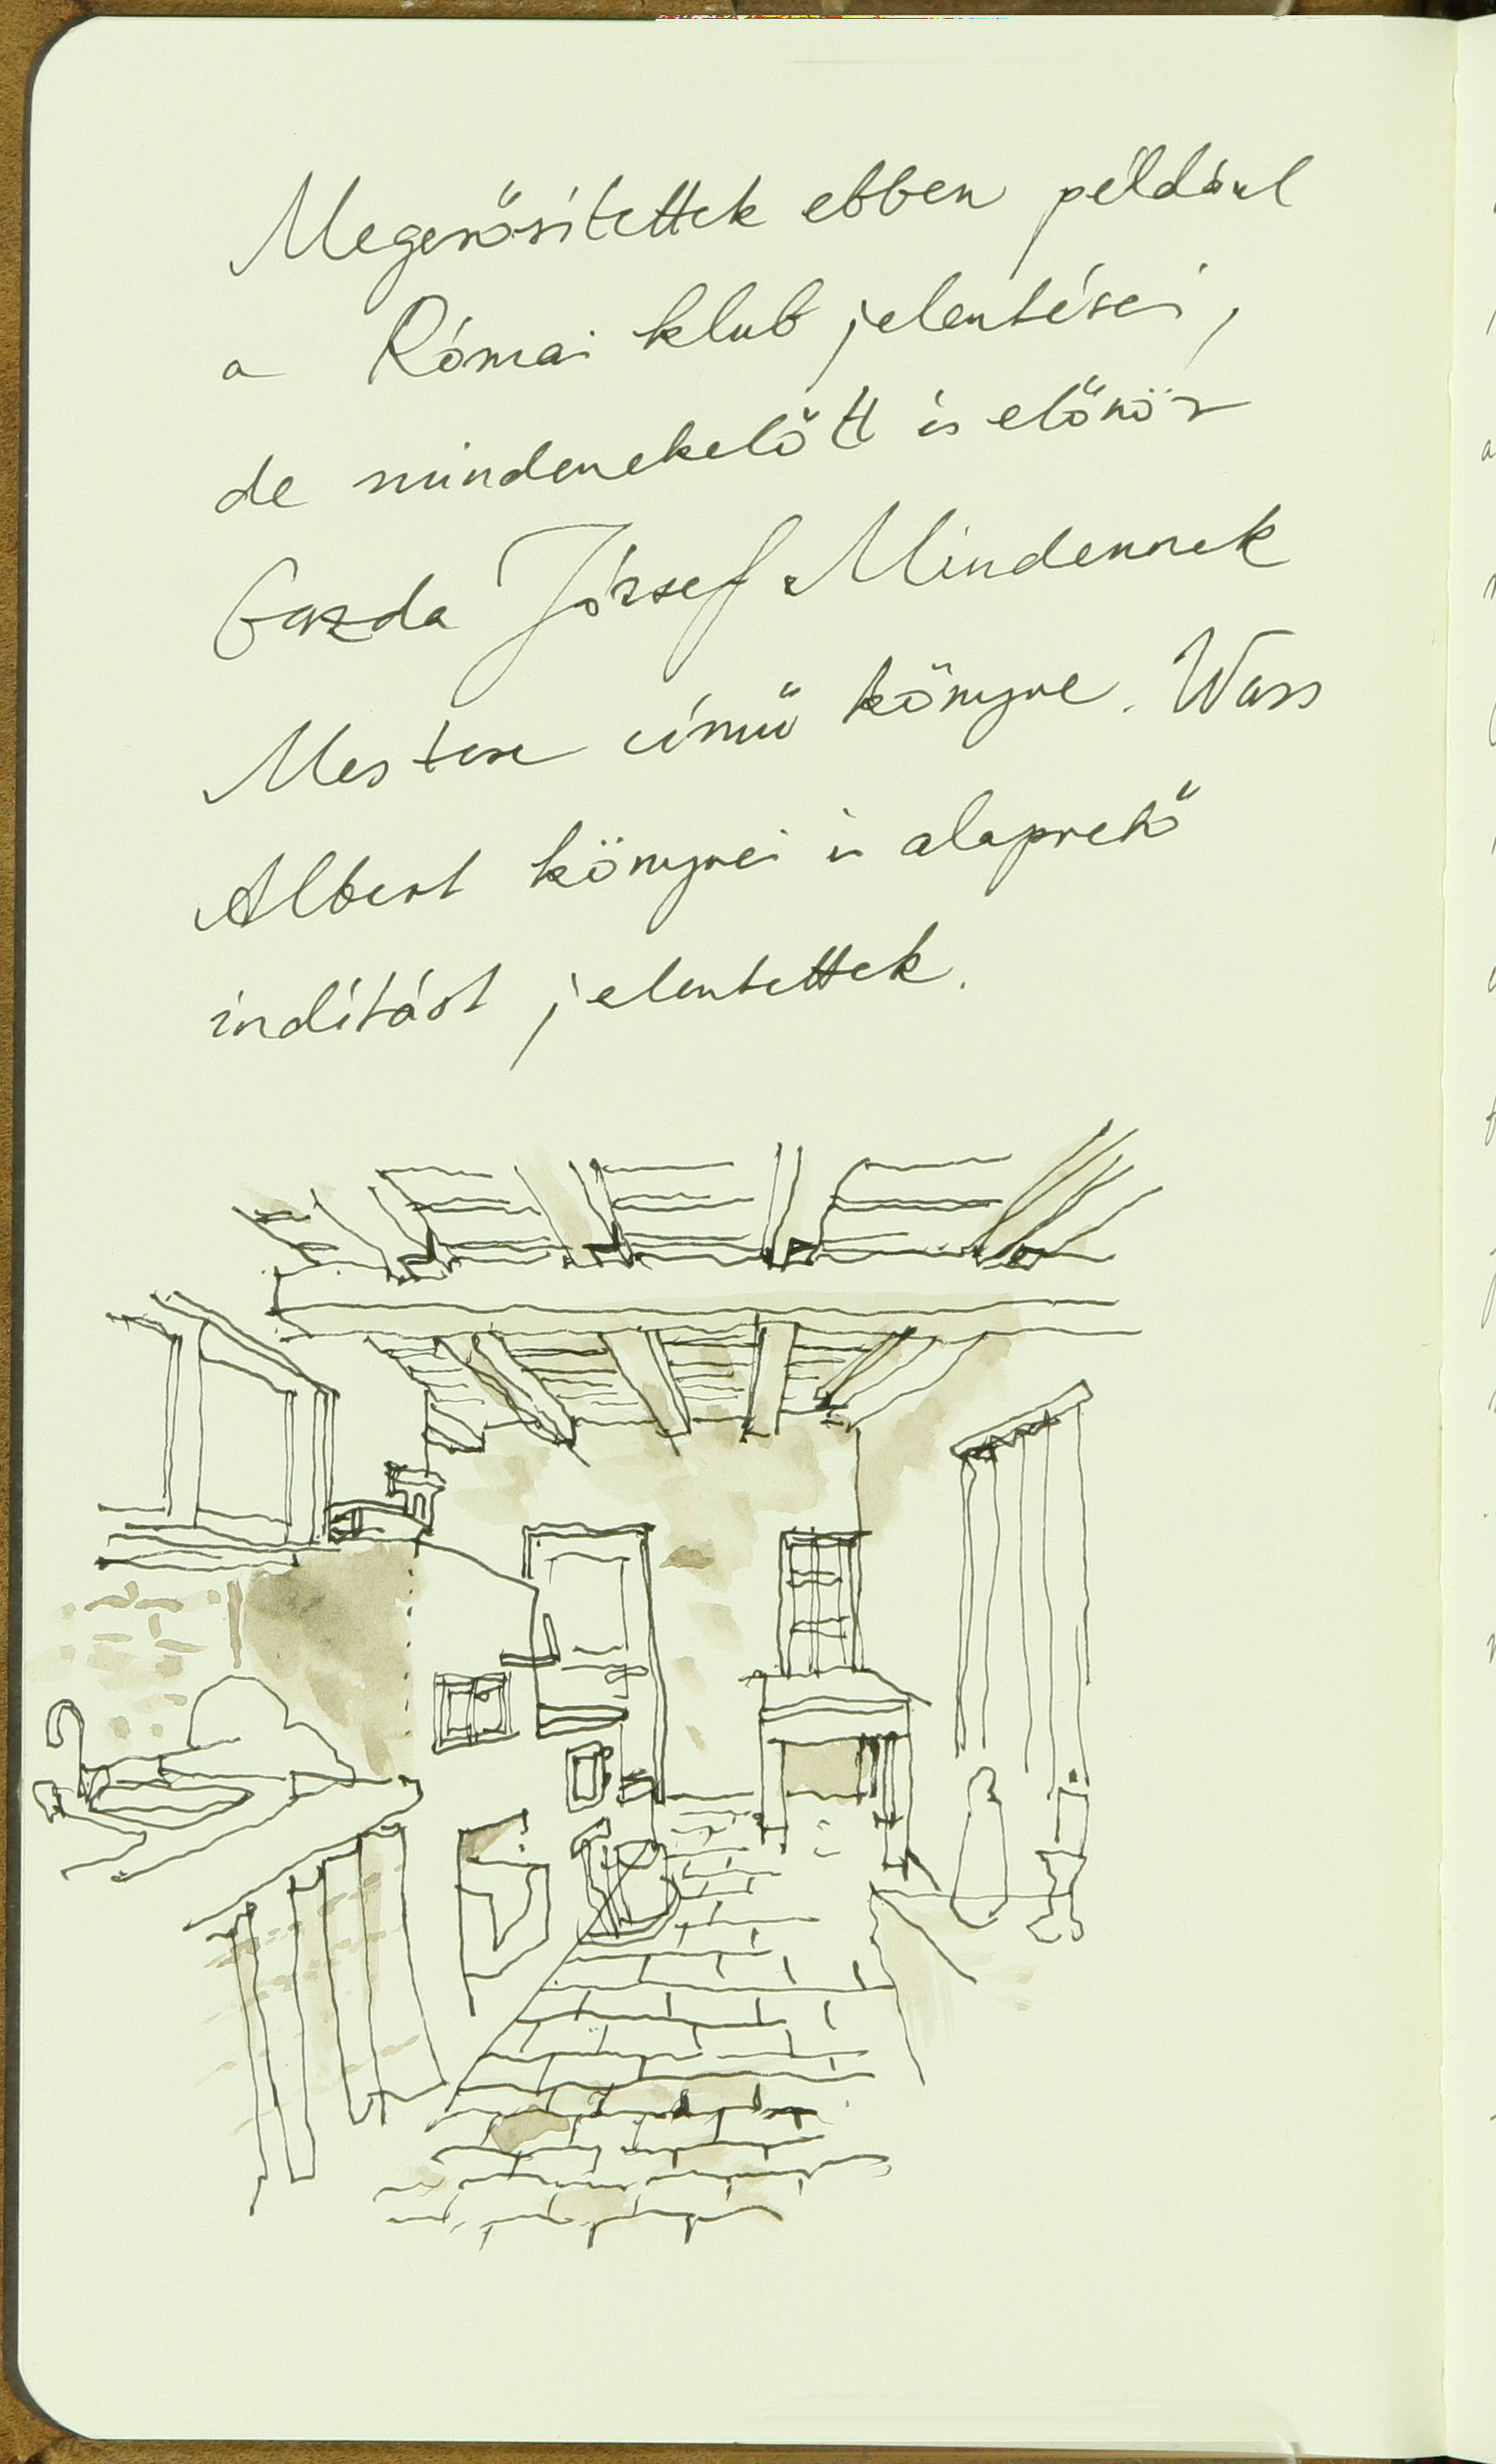 Megerősítettek ebben például
a Római klub jelentései,
de mindenekelőtt és először
Gazda József Mindennek
Mestere című könyve. Wass
Albert könyvei is alapvető
indítást jelentettek.